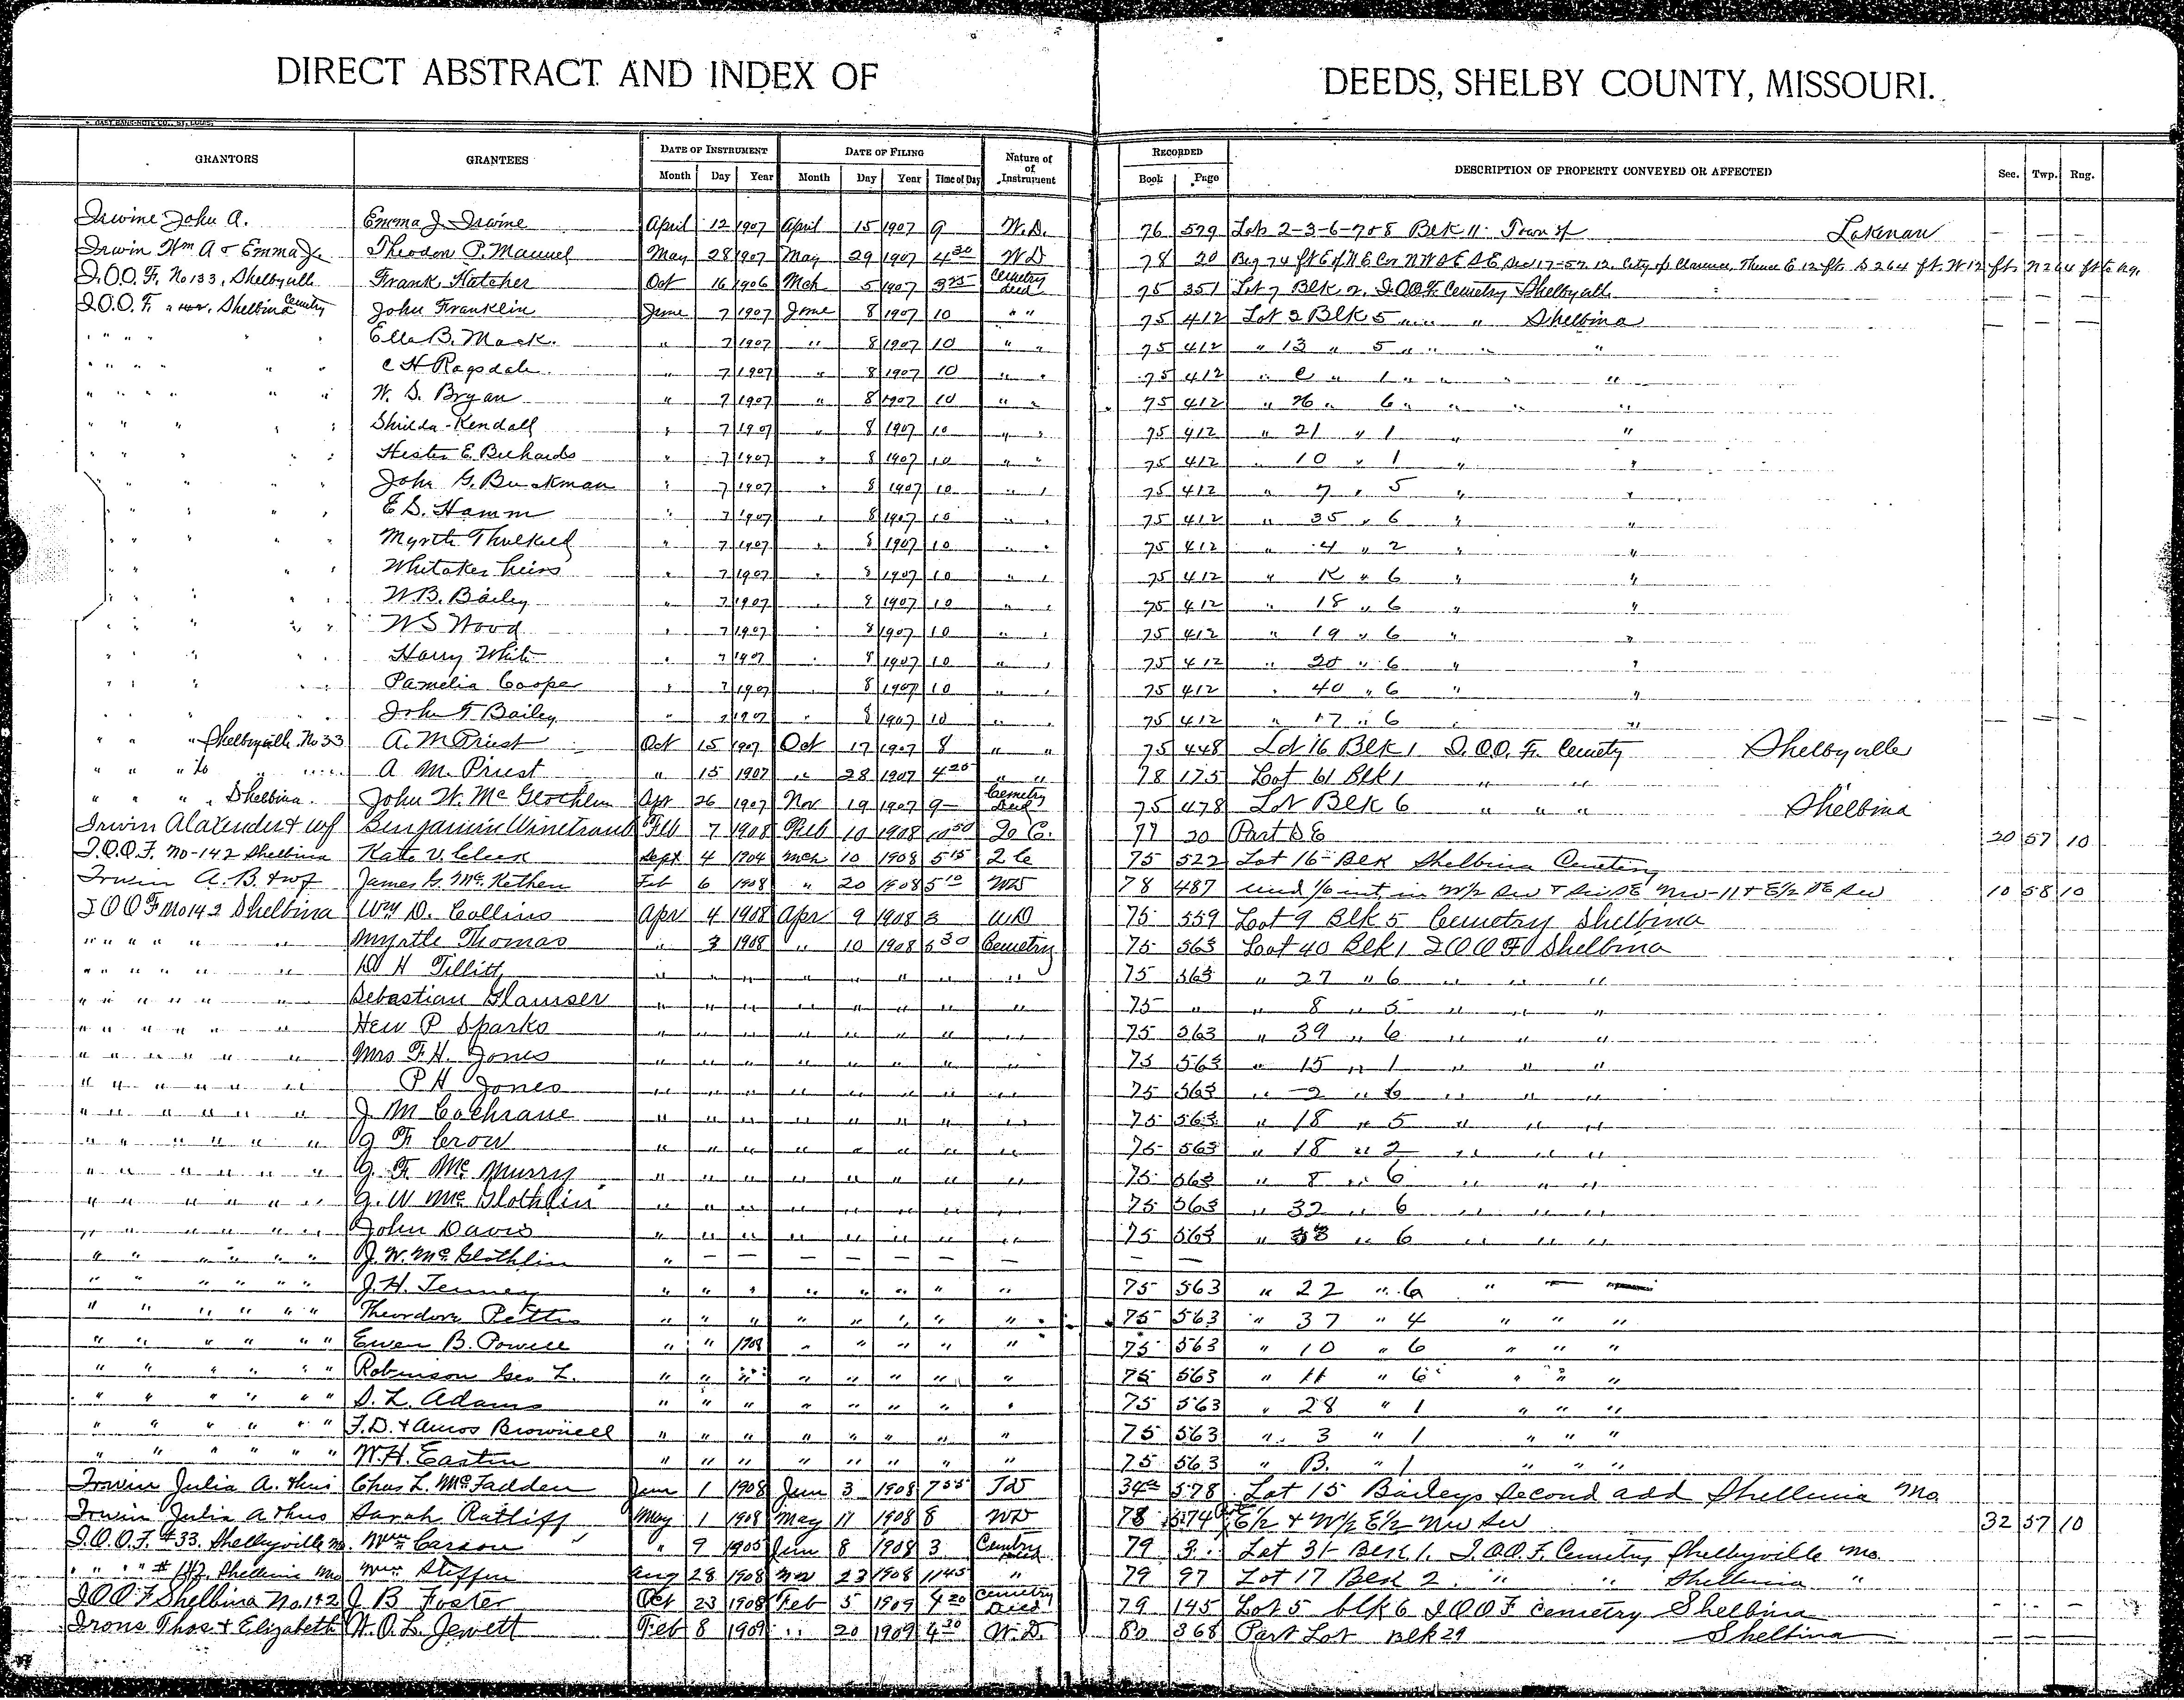 DIRECT ABSTRACT AND INDEX OF DEEDS, SHELBY COUNTY, MISSOURI.
GRANTORS GRANTEES DATE OF INSTRUMENT DATE OF FILING Nature of Instrument RECORDED DESCRIPTION OF PROPERTY CONVEYED OR AFFECTED Sec. Twp. Rng.
Month Day Year Month Day Year Time of Day Book Page
Irwine John A. Emma J. Irwine April 12 1907 April 15 1907 9 W.D. 76 579 Lots 2-3-6-7 & 8 Blk 11 Town of Lakenan — — —
Irwin Wm A & Emma J. Theodore P. Manuel May 28 1907 May 29 1907 4 30 WD 78 20 Beg 74 ft E of N E Cor N W S E S E Sec 17-57-12 City of Clarence, Thence E 12 ft. S 264 ft. W 12 ft. N 264 ft to beg.
I.O.O.F. No 133, Shelbyville Frank Hatcher Oct 16 1906 Mch 5 1907 3 25 Cemetery deed 75 351 Lot 7 Blk 2, I.O.O.F. Cemetery Shelbyville
I.O.O.F. Shelbina Cemetery John Franklin June 7 1907 June 8 1907 10 " " 75 412 Lot 3 Blk 5 " " " Shelbina
" " " " Ella B. Mack. " 7 1907 " 8 1907 10 " " 75 412 " 13 " 5 " " " "
" " " " " " C H Ragsdale " 7 1907 " 8 1907 10 " " 75 412 " C " 1 " " " "
" " " " " " W. S. Bryan " 7 1907 " 8 1907 10 " " 75 412 " 26 " 6 " " " "
" " " " " Shrilda Kendall " 7 1907 " 8 1907 10 " " 75 412 " 21 " 1 " "
" " " " " Hester E. Richards " 7 1907 " 8 1907 10 " " 75 412 " 10 " 1 " "
" " " " John G. Buckman " 7 1907 " 8 1907 10 " " 75 412 " 7 " 5 " "
" " " " " E S. Hamm " 7 1907 " 8 1907 10 " " 75 412 " 35 " 6 " "
" " " " " Myrtle Thulkeld " 7 1907 " 8 1907 10 " " 75 412 " 4 " 2 " "
" " " " Whitaker heirs " 7 1907 " 8 1907 10 " " 75 412 " K " 6 " "
" " " " W.B. Bailey " 7 1907 " 8 1907 10 " " 75 412 " 18 " 6 " "
" " " " " W S Wood " 7 1907 " 8 1907 10 " " 75 412 " 19 " 6 " "
" " " " " Harry White " 7 1907 " 8 1907 10 " " 75 412 " 20 " 6 " "
" " " " Pamelia Cooper " 7 1907 " 8 1907 10 " " 75 412 " 40 " 6 " "
" " " " John T. Bailey " 7 1907 " 8 1907 10 " " 75 412 " 17 " 6 " " — — —
" " " Shelbyville No 33 A. M Priest Oct 15 1907 Oct 17 1907 8 " " 75 448 Lot 16 Blk 1 I.O.O.F. Cemetery Shelbyville
" " " to " " A M. Priest " 15 1907 " 28 1907 4 20 " " 78 175 Lot 61 Blk 1 " "
" " " " Shelbina. John W. McGlothlin Apr 26 1907 Nov 19 1907 9— Cemetery Deed 75 478 Lot Blk 6 " " " Shelbina
Irwin Alaxender & wf Benjamin Winetraub Feb 7 1908 Feb 10 1908 10 50 2o C. 77 20 Part S E 20 57 10
I.O.O.F. No-142 Shelbina Kate V. Cleek Sept 4 1904 Mch 10 1908 5 15 2 C 75 522 Lot 16 - Blk Shelbina Cemetery
Irwin A. B. & wf James G. McKethen Feb 6 1908 " 20 1908 5 10 WD 78 487 und 1/6 int. in W/2 Sw & SE 10 58 10
I O O F No 142 Shelbina Wm D. Collins Apr 4 1908 Apr 9 1908 3 WD 75 559 Lot 9 Blk 5 Cemetery Shelbina
" " " " " " Myrtle Thomas " 3 1908 " 10 1908 5 30 Cemetery 75 563 Lot 40 Blk 1 I O O F Shelbina
" " " " " " W H Tillitt " " " " " " " " 75 563 " 27 " 6 " " "
" " " " " " Sebastian Glamser " " " " " " " " 75 " " 8 " 5 " " "
" " " " " " Hew P Sparks " " " " " " " " 75 563 " 39 " 6 " " "
" " " " " " Mrs F.H. Jones " " " " " " " " 75 563 " 15 " 1 " " "
" " " " " " P H Jones " " " " " " " " 75 563 " 2 " 6 " " "
" " " " " " J M Cochrane " " " " " " " " 75 563 " 18 " 5 " " "
" " " " " " J F Crow " " " " " " " " 75 563 " 18 " 2 " " "
" " " " " " J. F. McMurry " " " " " " " " 75 563 " 8 " 6 " " "
" " " " " " J. W McGlothlin " " " " " " " " 75 563 " 32 " 6 " " "
" " " " " " John Davis " " " " " " " " 75 563 " 38 " 6 " " "
" " " " " " J. W. McGlothlin " — — — — — — — — —
" " " " " " J. H. Tenney " " " " " " " " 75 563 " 22 " 6 "
" " " " " " Theordore Pettis " " " " " " " " 75 563 " 37 " 4 " " "
" " " " " " Ewen B. Powell " " 1908 " " " " " 75 563 " 10 " 6 " " "
" " " " " " Robinson Geo L. " " " " " " " " 75 563 " 11 " 6 " " "
" " " " " " S. L. Adams " " " " " " " " 75 563 " 28 " 1 " " "
" " " " " " F. D. & Amos Brownell " " " " " " " " 75 563 " 3 " 1 " " "
" " " " " " W. H. Eastin " " " " " " " " 75 563 " B. " 1 " " "
Irwin Julia A. & hus Chas L. McFadden June 1 1908 June 3 1908 7 55 TD 34 578 Lot 15 Baileys Second add Shelbina Mo.
Irwin Julia A & hus Sarah Ratliff May 1 1908 May 11 1908 8 WD 78 574 E/2 & W/2 E/2 NW SW 32 57 10
I.O.O.F. #33. Shelbyville Mo. Wm Carson " 9 1905 Jun 8 1908 3 Cemetry Deed 79 3 Lot 31 - Blk 1. I.O.O.F. Cemetery Shelbyville Mo.
" " " # 142. Shelbina Mo Wm Steffen Aug 28 1908 Nov 23 1908 11 45 " 79 97 Lot 17 Blk 2 " " Shelbina "
I O O F Shelbina No 142 J B Foster Oct 23 1908 Feb 5 1909 4 20 Cemetery Deed 79 145 Lot 5 blk 6 I O O F cemetry Shelbina
Irons Thos. & Elizabeth W. O. L. Jewett Feb 8 1909 " 20 1909 4 30 W.D. 80 368 Part Lot Blk 29 Shelbina